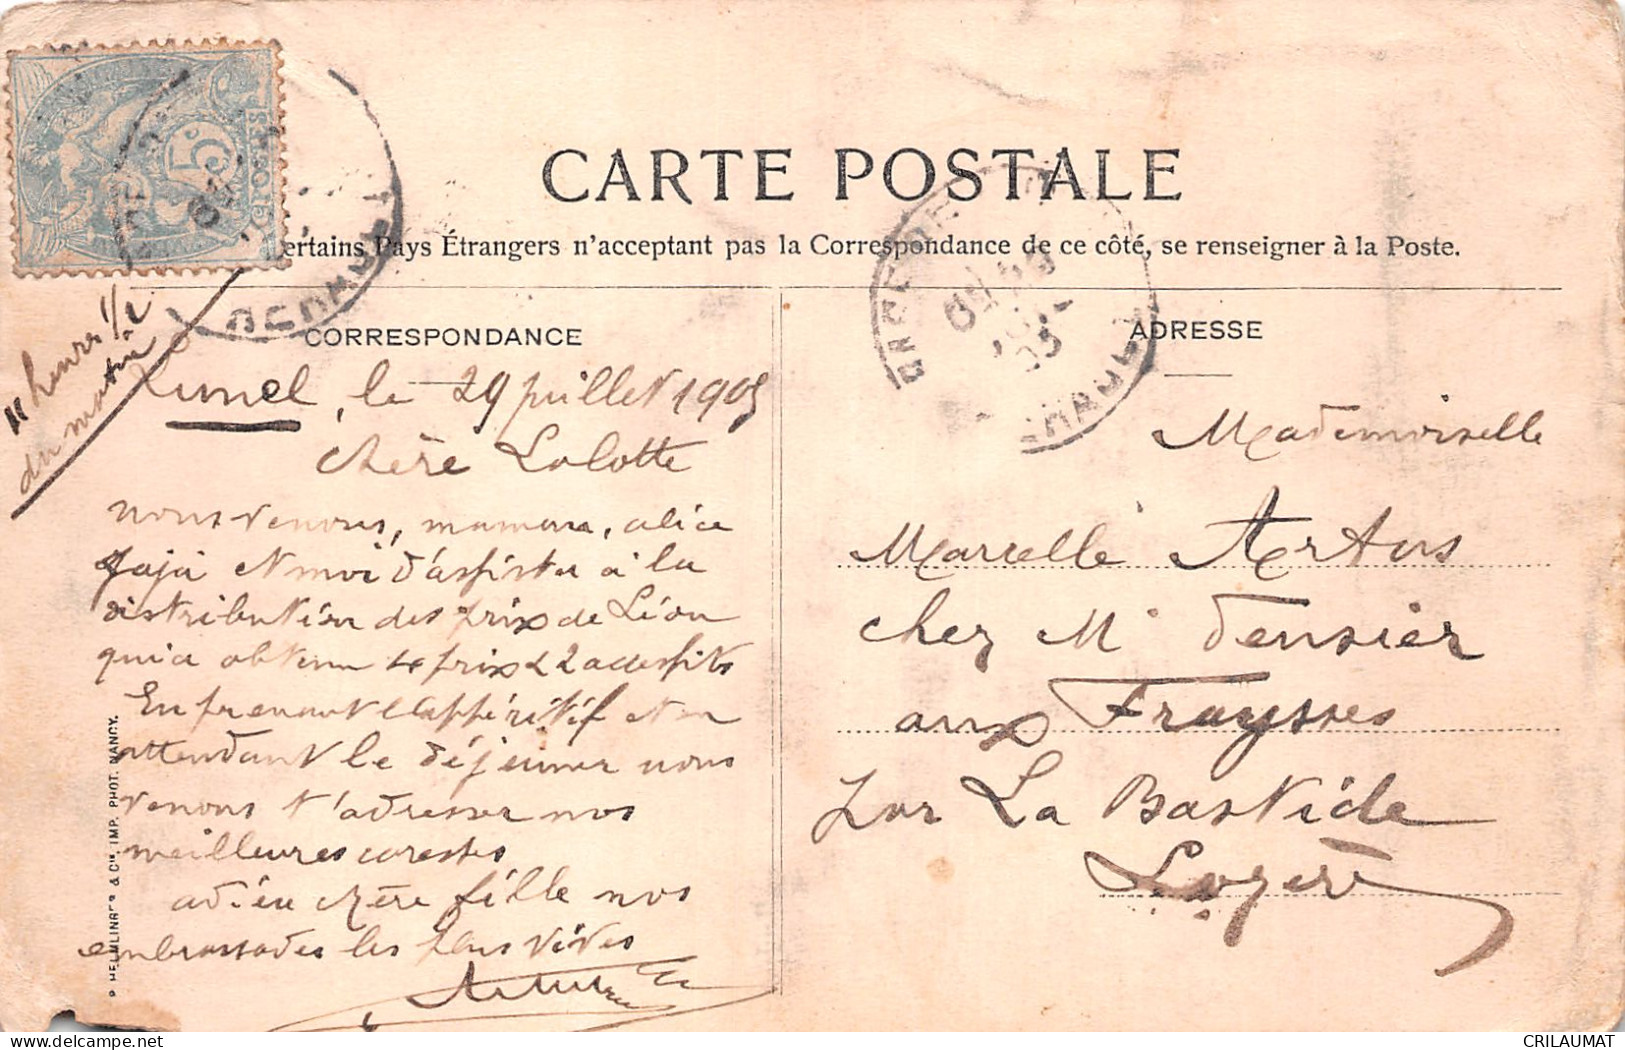 CARTE POSTALE
ertains Pays Étrangers n'acceptant pas la Correspondance de ce côté, se renseigner à la Poste.
5c
HERAULT
HERAULT
CORRESPONDANCE
11 heures 1/2
du matin
Lunel, le 29 juillet 1905
Chère Lolotte
nous venons, maman, alice
et moi d'assister à la
distribution des prix de Léon
qui a obtenu 4 prix & 2 accessits
En prenant l'appéritif et en
attendant le déjeuner nous
venons t'adresser nos
meilleures caresses
adieu chère fille nos
embrassades les plus vives
HELMLINGER & Cie, IMP. PHOT. NANCY.
ADRESSE
Mademoiselle
Marcelle Artus
chez Mr
aux Fraysses
par La Bastide
Lozère
CRILAUMAT